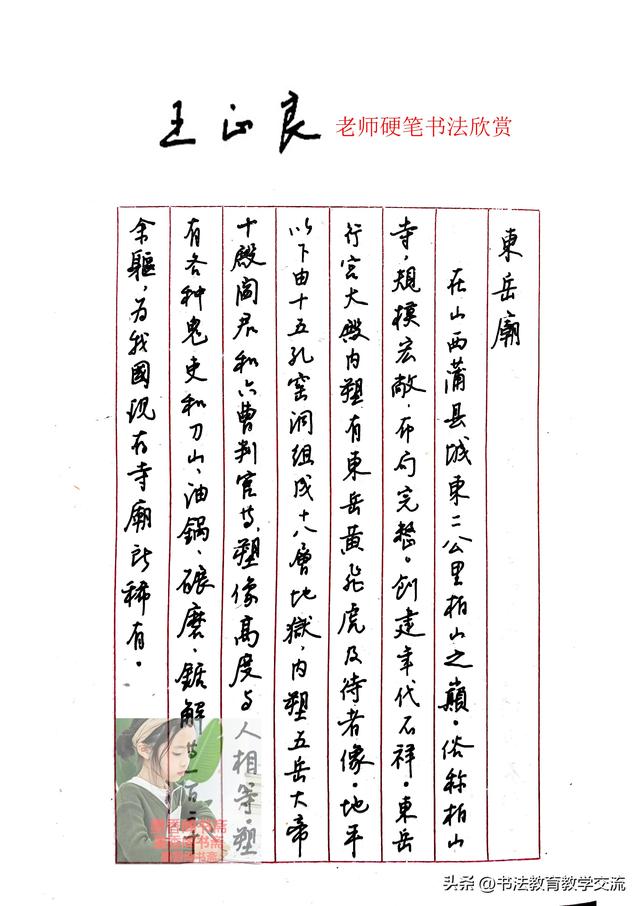 王正良 老师硬笔书法欣赏
東岳廟
在山西蒲县城東二公里柏山之巔。俗称柏山
寺，規模宏敞，布局完整。创建年代不祥。東岳
行宫大殿内塑有東岳黄飛虎及待者像。地平
以下由十五孔窑洞组成十八層地獄，内塑五岳大帝
十殿阎君和六曹判官等，塑像高度与人相等。塑
有各种鬼吏和刀山、油鍋、碾磨、鋸解等一百二十
余軀，为我國现存寺廟所稀有。
書香閣书斋
头条 @书法教育教学交流